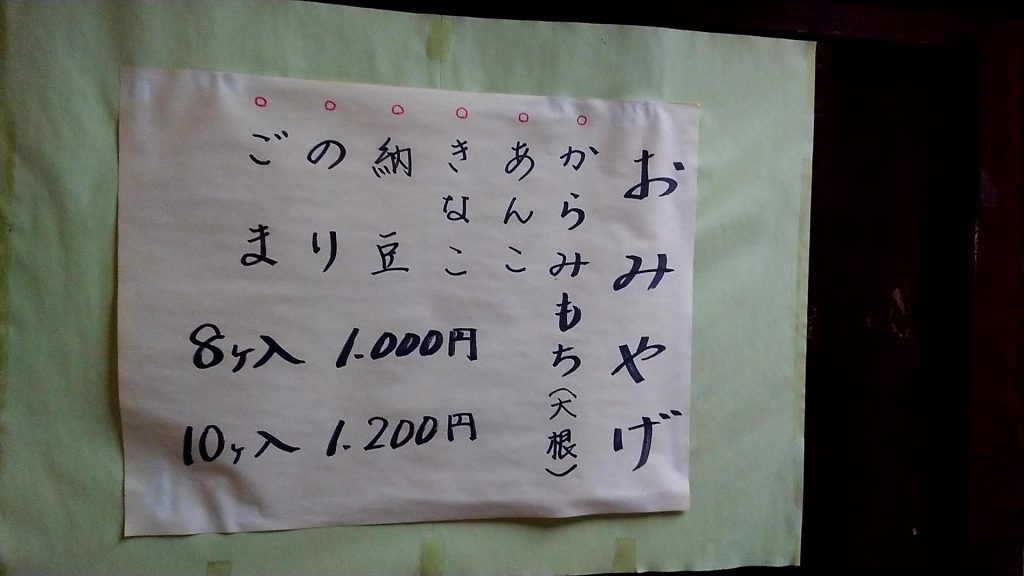 おみやげ
○からみもち(大根)
○あんこ
○きなこ
○納豆
○のり
○ごま
8ヶ入 1.000円
10ヶ入 1.200円